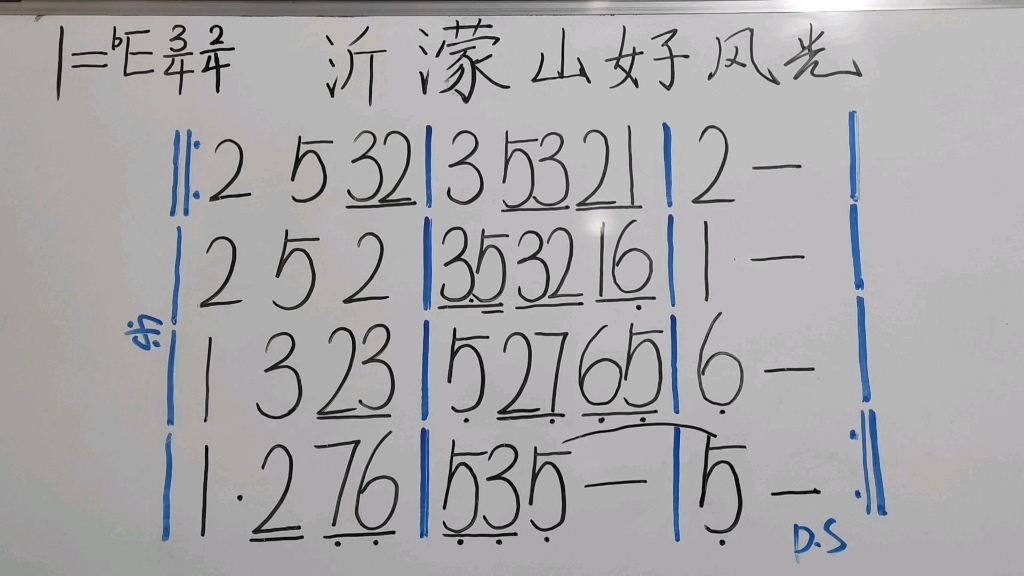 1=ᵇE 3/4 2/4 沂濛山好风光
‖: 2 5 32 | 3 53 21 | 2 — |
| 2 5 2 | 3·5 32 16̣ | 1 — |
| 1 3 23 | 5̣ 27̣ 6̣5̣ | 6̣ — |
| 1· 2 7̣6̣ | 5̣3̣5̣ — | 5̣ — :‖
D.S